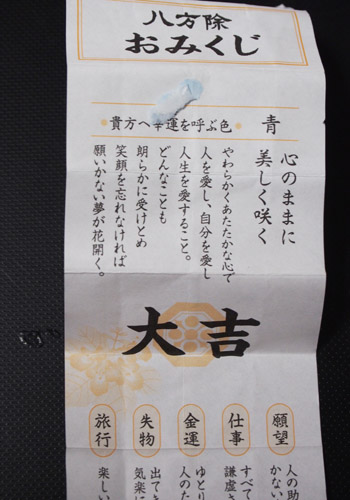 八方除
おみくじ
●貴方へ幸運を呼ぶ色● 青
心のままに
美しく咲く
やわらかくあたたかな心で
人を愛し、自分を愛し
人生を愛すること。
どんなことも
朗らかに受けとめ
笑顔を忘れなければ
願いかない夢が花開く。
大吉
願望
人の助
かない
仕事
すべて
謙虚
金運
ゆとり
人のた
失物
出てき
気楽に
旅行
楽しい